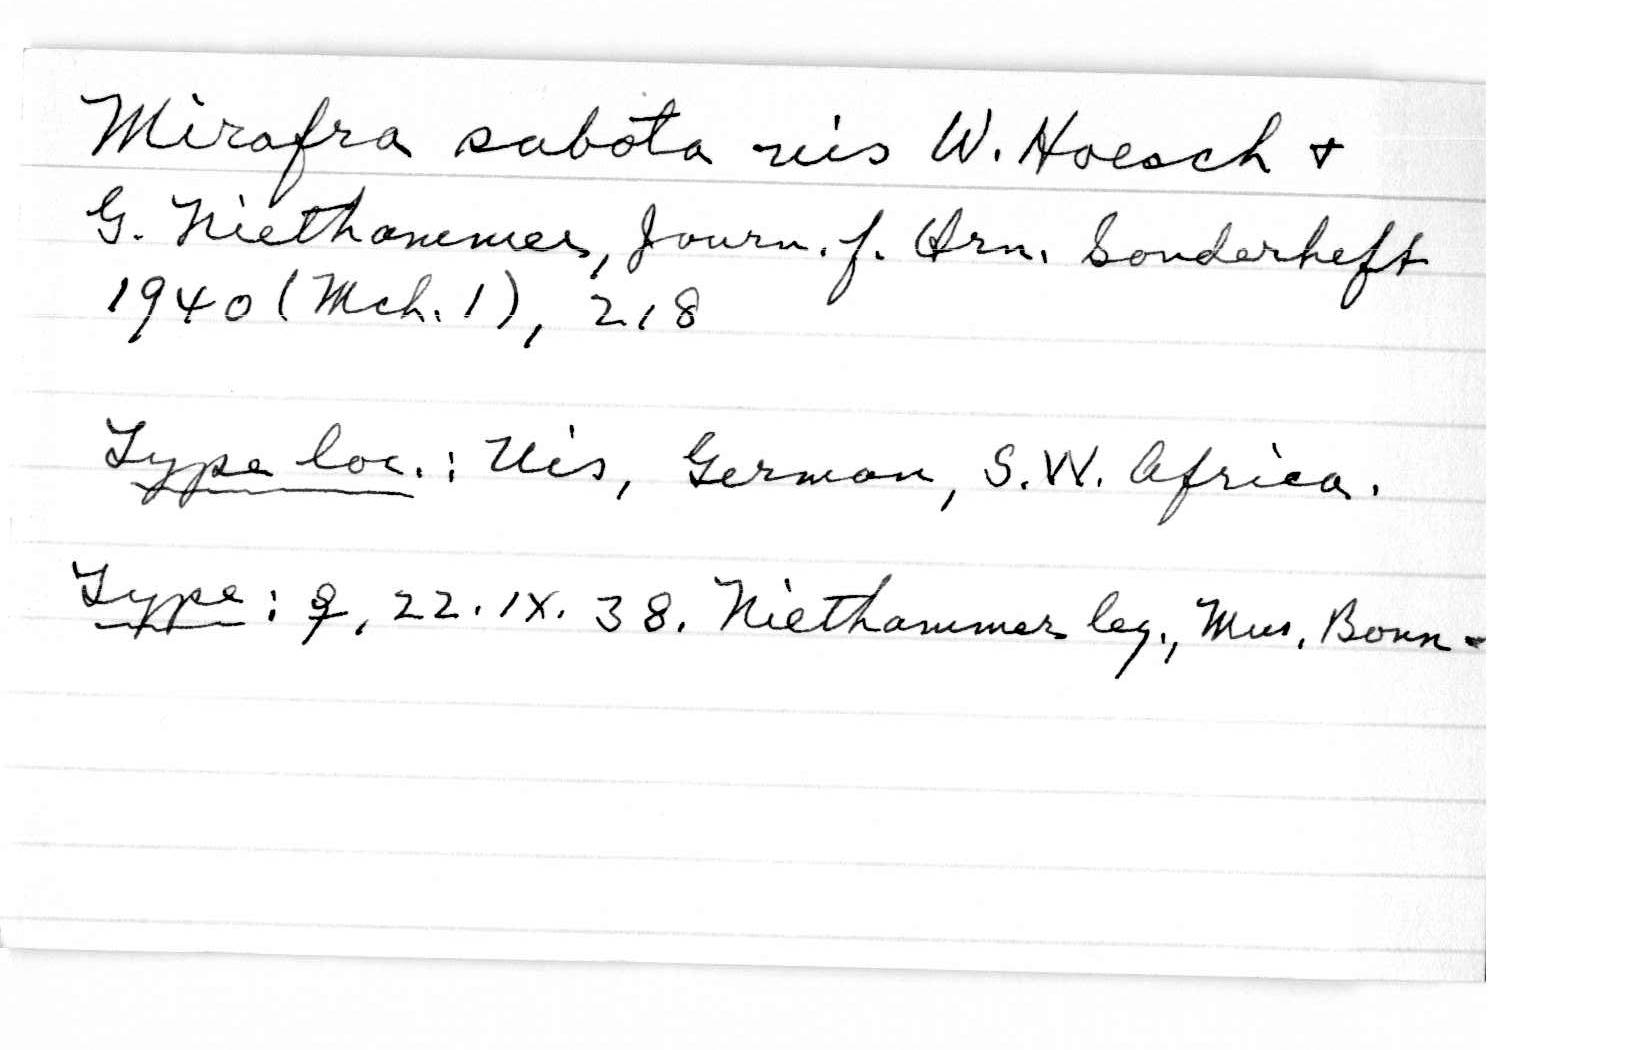 Mirafra sabota uis W. Hoesch +
G. Niethammer, Journ. f. Orn. Sonderheft
1940 (Mch. 1), 218
Type loc.: Uis, German, S.W. Africa.
Type: ♀, 22.IX.38. Niethammer leg., Mus. Bonn-